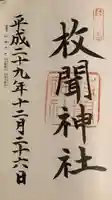 枚聞神社
平成二十九年十二月二十六日